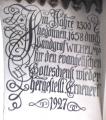 Im Jahre 1300
1658 durch
Landgraf WILHELM
für den evangelischen
Gottesdienst wieder
hergestellt. Erneuert
1927